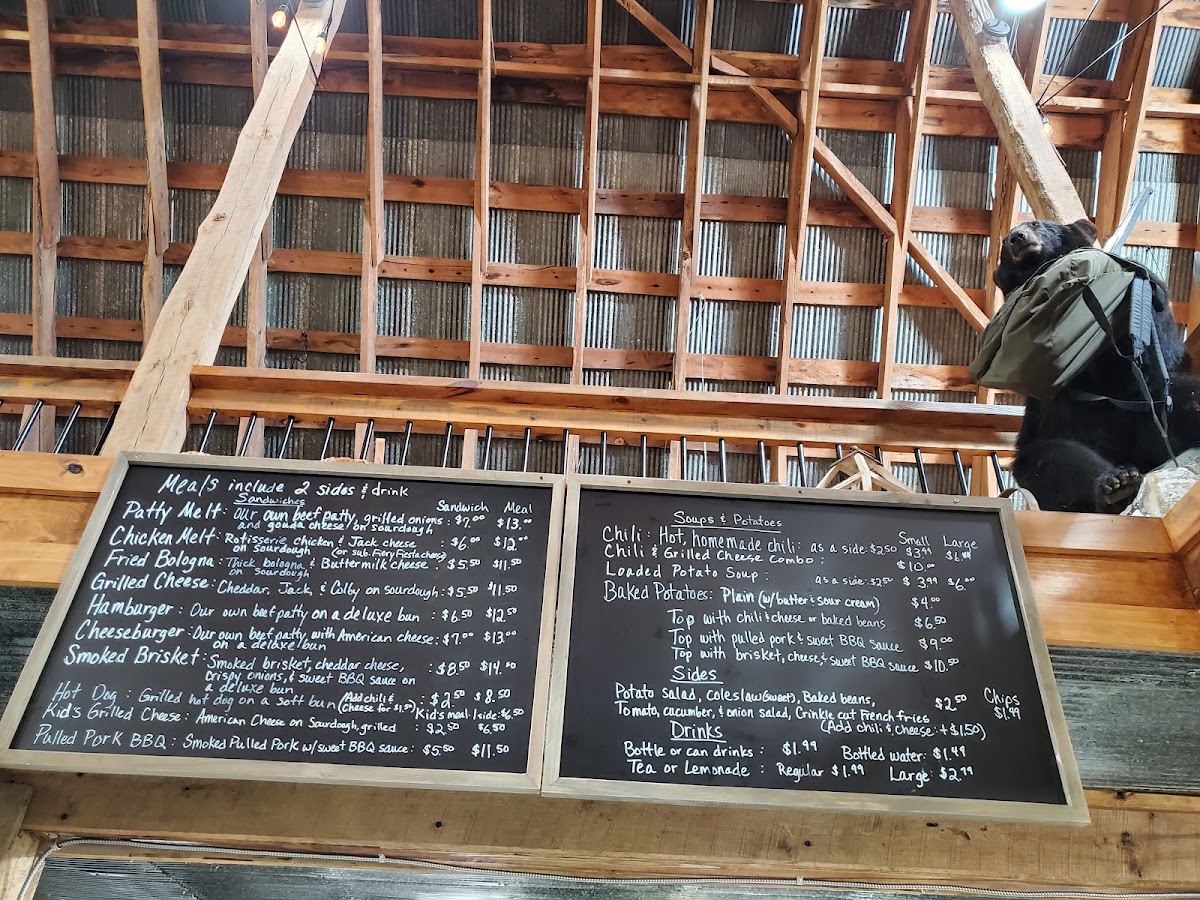 Meals include 2 sides & drink
Sandwiches Sandwich Meal
Patty Melt: our own beef patty, grilled onions : $7.00 $13.00
and gouda cheese/on sourdough
Chicken Melt: Rotisserie chicken & Jack cheese : $6.00 $12.00
on sourdough (or sub. Fiery Fiesta cheese)
Fried Bologna: Thick bologna & Buttermilk cheese : $5.50 $11.50
on sourdough
Grilled Cheese: Cheddar, Jack, & Colby on sourdough: $5.50 $11.50
Hamburger: Our own beef patty on a deluxe bun : $6.50 $12.50
Cheeseburger: Our own beef patty with American cheese: $7.00 $13.00
on a deluxe bun
Smoked Brisket: Smoked brisket, cheddar cheese, : $8.50 $14.50
crispy onions, & sweet BBQ sauce on
a deluxe bun
Hot Dog: Grilled hot dog on a soft bun (Add chili & : $2.50 $8.50
Cheese for $1.50) Kid's meal: 1 side: $6.50
Kid's Grilled Cheese: American Cheese on Sourdough, grilled : $2.50 $6.50
Pulled Pork BBQ: Smoked Pulled Pork w/sweet BBQ sauce: $5.50 $11.50
Soups & Potatoes
Small Large
Chili: Hot, homemade chili: as a side: $2.50 $3.99
Chili & Grilled Cheese combo: $10.00
Loaded Potato Soup: as a side: $2.50 $3.99 $6.00
Baked Potatoes: Plain (w/butter & sour cream) $4.00
Top with chili & cheese or baked beans $6.50
Top with pulled pork & sweet BBQ sauce $9.00
Top with brisket, cheese, & sweet BBQ sauce $10.50
Sides
Potato salad, coleslaw (sweet), Baked beans, $2.50 Chips
Tomato, cucumber, & onion salad, Crinkle cut French fries $1.99
(Add chili & cheese: +$1.50)
Drinks
Bottle or can drinks: $1.99 Bottled water: $1.49
Tea or Lemonade: Regular $1.99 Large: $2.79